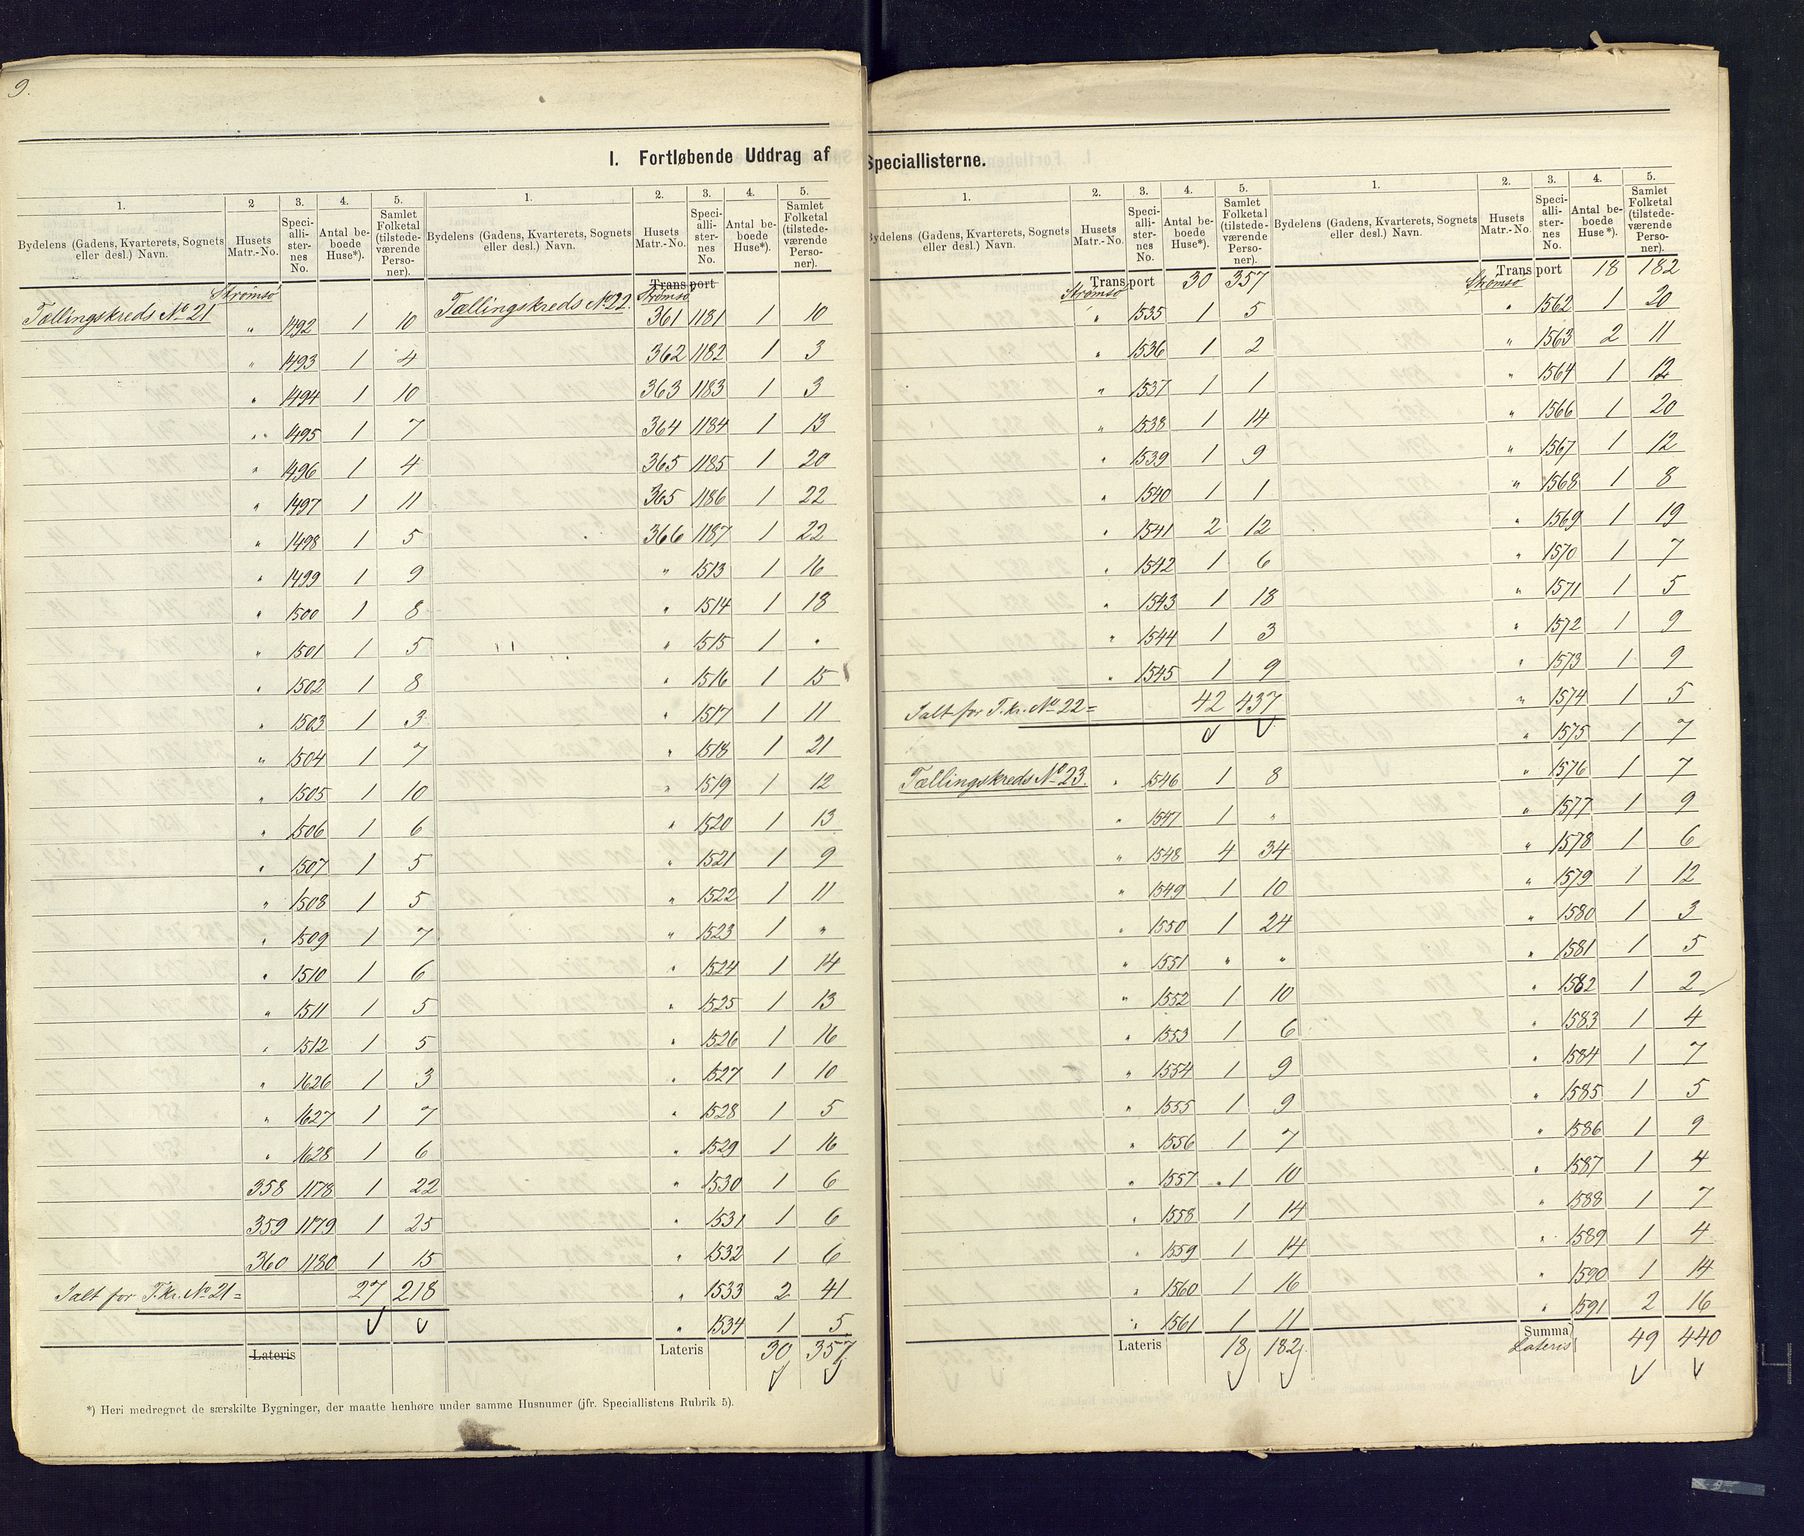 9.
I. Fortløbende Uddrag af Speciallisterne.
1. 2 3. 4. 5.
Bydelens (Gadens, Kvarterets, Sognets eller desl.) Navn. Husets Matr.-No. Speciallisternes No. Antal beboede Huse*). Samlet Folketal (tilstedeværende Personer).
Strømsø
Tællingskreds No 21 " 1492 1 10
" 1493 1 4
" 1494 1 10
" 1495 1 7
" 1496 1 4
" 1497 1 11
" 1498 1 5
" 1499 1 9
" 1500 1 8
" 1501 1 5
" 1502 1 8
" 1503 1 3
" 1504 1 7
" 1505 1 10
" 1506 1 6
" 1507 1 5
" 1508 1 5
" 1509 1 7
" 1510 1 6
" 1511 1 5
" 1512 1 5
" 1626 1 3
" 1627 1 7
" 1628 1 6
358 1178 1 22
359 1179 1 25
360 1180 1 15
Ialt for T.kr. No 21 = 27 218
Lateris
1. 2. 3. 4. 5.
Bydelens (Gadens, Kvarterets, Sognets eller desl.) Navn. Husets Matr.-No. Speciallisternes No. Antal beboede Huse*). Samlet Folketal (tilstedeværende Personer).
Transport
Strømsø
Tællingskreds No 22. 361 1181 1 10
362 1182 1 3
363 1183 1 3
364 1184 1 13
365 1185 1 20
365 1186 1 22
366 1187 1 22
" 1513 1 16
" 1514 1 18
" 1515 1 "
" 1516 1 15
" 1517 1 11
" 1518 1 21
" 1519 1 12
" 1520 1 13
" 1521 1 9
" 1522 1 11
" 1523 1 "
" 1524 1 14
" 1525 1 13
" 1526 1 16
" 1527 1 10
" 1528 1 5
" 1529 1 16
" 1530 1 6
" 1531 1 6
" 1532 1 6
" 1533 2 41
" 1534 1 5
Lateris 30 357
*) Heri medregnet de særskilte Bygninger, der maatte henhøre under samme Husnumer (jfr. Speciallistens Rubrik 5).
1. 2. 3. 4. 5.
Bydelens (Gadens, Kvarterets, Sognets eller desl.) Navn. Husets Matr.-No. Speciallisternes No. Antal beboede Huse*). Samlet Folketal (tilstedeværende Personer).
Transport 30 357
Strømsø
" 1535 1 5
" 1536 1 2
" 1537 1 1
" 1538 1 14
" 1539 1 9
" 1540 1 1
" 1541 2 12
" 1542 1 6
" 1543 1 18
" 1544 1 3
" 1545 1 9
Ialt for T.kr. No 22 = 42 437
Tællingskreds No 23. " 1546 1 8
" 1547 1 "
" 1548 4 34
" 1549 1 10
" 1550 1 24
" 1551 " "
" 1552 1 10
" 1553 1 6
" 1554 1 9
" 1555 1 9
" 1556 1 7
" 1557 1 10
" 1558 1 14
" 1559 1 14
" 1560 1 16
" 1561 1 11
Lateris 18 182
1. 2. 3. 4. 5.
Bydelens (Gadens, Kvarterets, Sognets eller desl.) Navn. Husets Matr.-No. Speciallisternes No. Antal beboede Huse*). Samlet Folketal (tilstedeværende Personer).
Transport 18 182
Strømsø
" 1562 1 20
" 1563 2 11
" 1564 1 12
" 1566 1 20
" 1567 1 12
" 1568 1 8
" 1569 1 19
" 1570 1 7
" 1571 1 5
" 1572 1 9
" 1573 1 9
" 1574 1 5
" 1575 1 7
" 1576 1 7
" 1577 1 9
" 1578 1 6
" 1579 1 12
" 1580 1 3
" 1581 1 5
" 1582 1 2
" 1583 1 4
" 1584 1 7
" 1585 1 5
" 1586 1 9
" 1587 1 4
" 1588 1 7
" 1589 1 4
" 1590 1 14
" 1591 2 16
Summa
Lateris 49 440